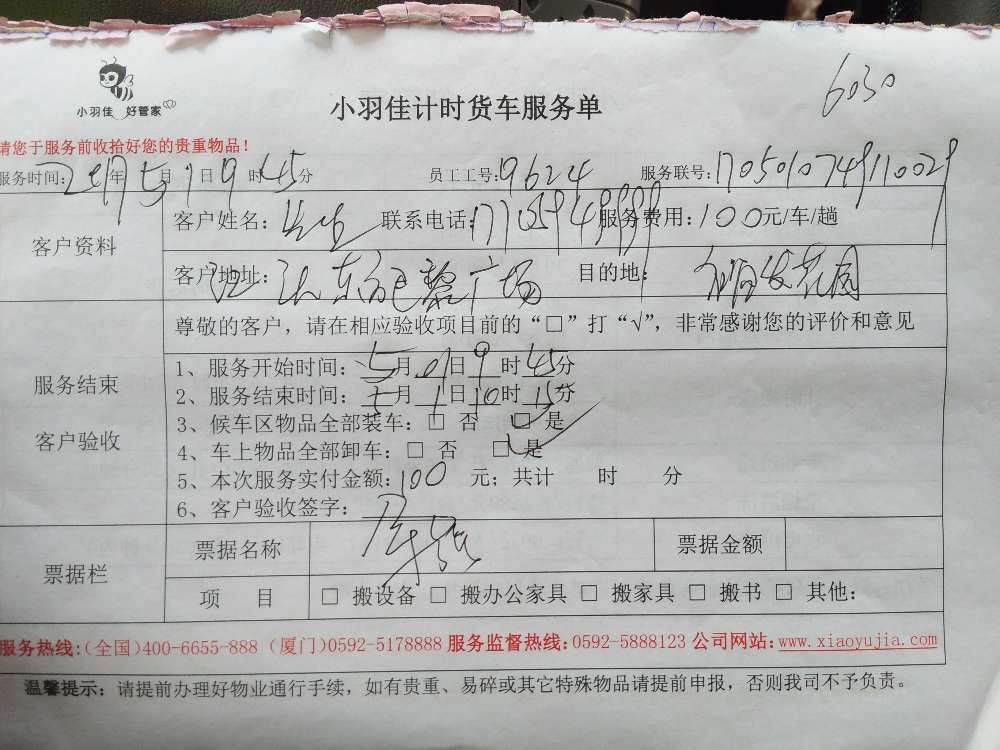 小羽佳 好管家
小羽佳计时货车服务单
6030
请您于服务前收拾好您的贵重物品！
服务时间：2017年5月1日9时45分 员工工号：19624 服务联号：
客户资料
客户姓名： 联系电话： 服务费用：100元/车/趟
客户地址：巴黎广场 目的地：花园
尊敬的客户，请在相应验收项目前的“□”打“√”，非常感谢您的评价和意见
服务结束
客户验收
1、服务开始时间：5月01日9时45分
2、服务结束时间：5月1日10时15分
3、候车区物品全部装车：□ 否 □ 是
4、车上物品全部卸车：□ 否 □ 是
5、本次服务实付金额：100 元；共计 时 分
6、客户验收签字：
票据栏
票据名称 票据金额
项 目 □ 搬设备 □ 搬办公家具 □ 搬家具 □ 搬书 □ 其他：
服务热线：（全国）400-6655-888 （厦门）0592-5178888 服务监督热线：0592-5888123 公司网站：www.xiaoyujia.com
温馨提示：请提前办理好物业通行手续，如有贵重、易碎或其它特殊物品请提前申报，否则我司不予负责。